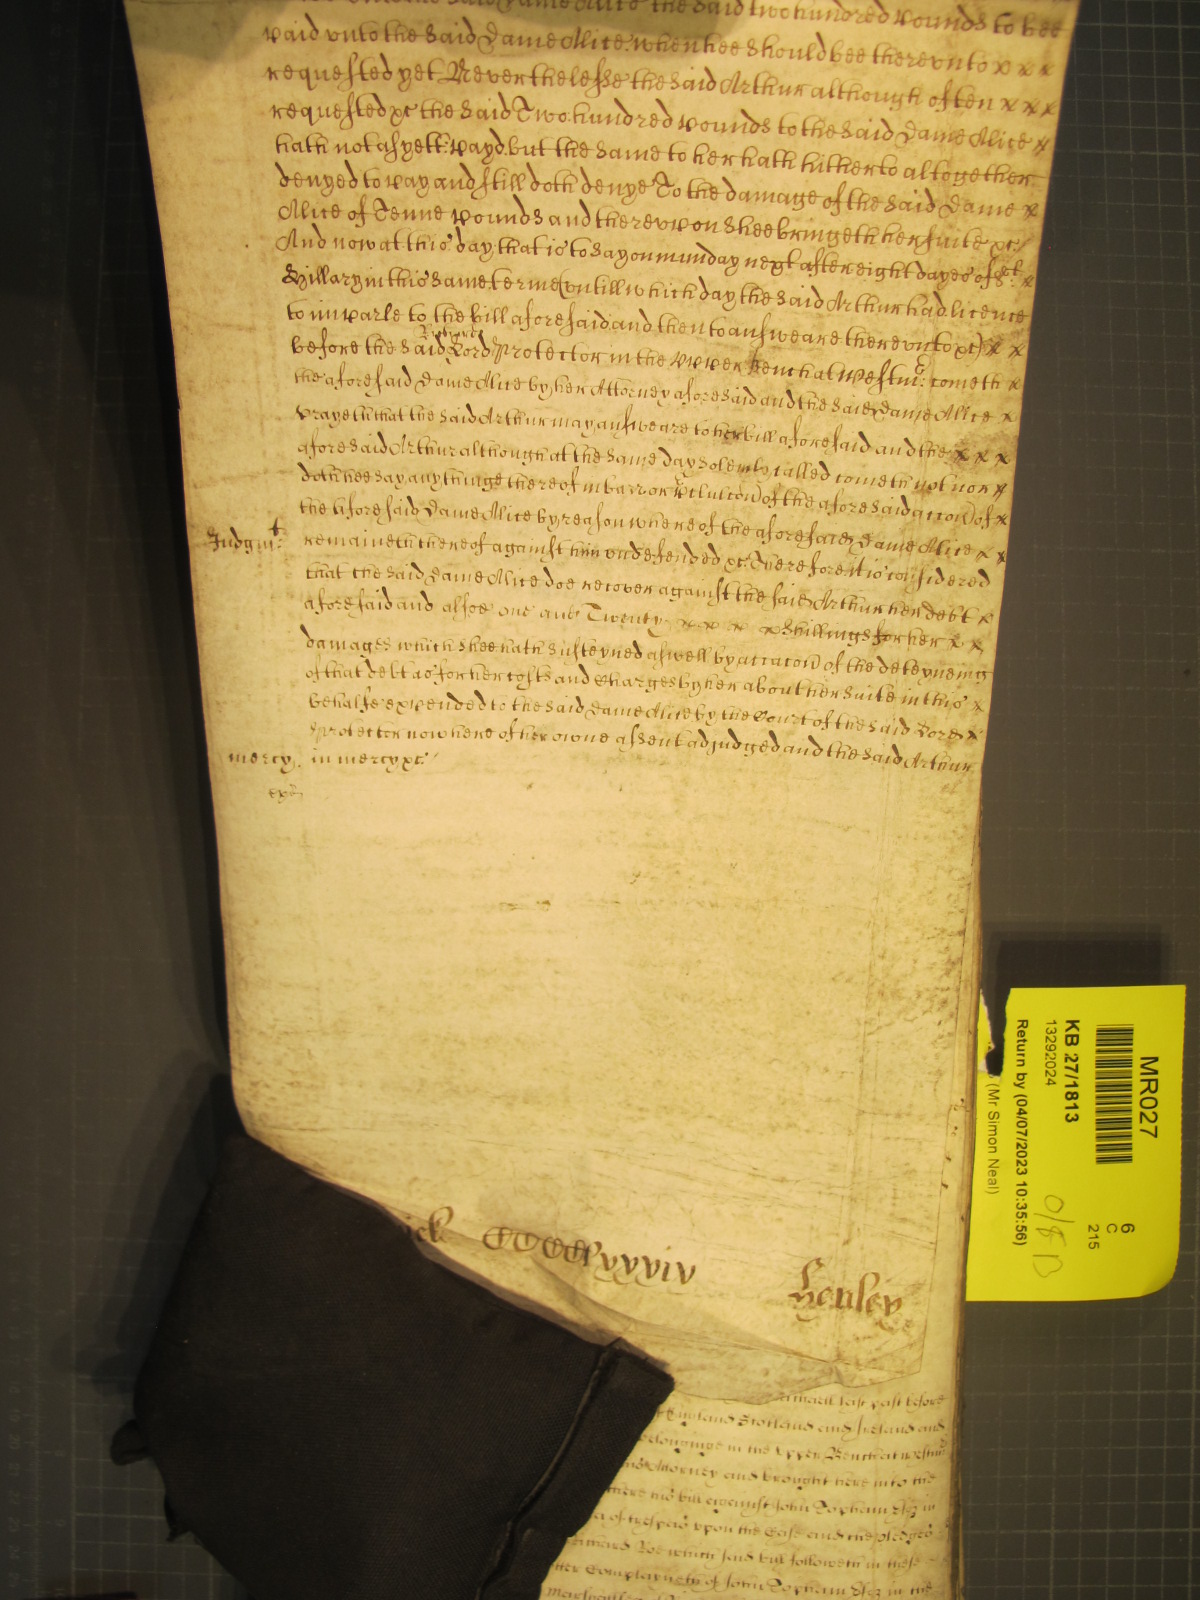 the said Dame Alice the said two hundred pounds to bee
paid unto the said Dame Alice when hee should bee thereunto x x x
requested yet Neverthelesse the said Arthur although often x x x
requested &c the said Two hundred pounds to the said Dame Alice x
hath not as yett payd but the same to her hath hitherto altogether
denyed to pay and still doth denye To the damage of the said Dame x
Alice of Tenne pounds and thereupon shee bringeth her suite &c
And now at this day that is to say on munday next after eight dayes of St. x
Hillary in this same terme (untill which day the said Arthur had licence
to imparle to the bill aforesaid and then to answeare thereunto &c) x x
before the said Richard Lord Protector in the upper bench at Westmr. cometh x
the aforesaid Dame Alice by her Attorney aforesaid and the said Dame Alice x
prayeth that the said Arthur may answeare to her bill aforesaid and the x x x
aforesaid Arthur although at the same day solemly called cometh not nor x
doth hee say any thinge thereof in barr or p'clusion of the aforesaid accon of x
the aforesaid Dame Alice by reason whereof the aforesaid Dame Alice x x
Judgmt.
remaineth thereof against him undefended &c Therefore it is considered
that the said Dame Alice doe recover against the said Arthur her debt x
aforesaid and alsoe one and Twenty x x x x shillings for her x x
damages which shee hath susteyned aswell by occacon of the deteyneing
of that debt as for her costs and Charges by her about her suite in this x
behalfe expended to the said Dame Alice by the Court of the said Lord x
Protector now here of her owne assent adjudged and the said Arthur
mercy. in mercy &c
ick CCCCPxxxiv Henley
last past before
England Scotland and Ireland and
belonginge in the Upper Bench at Westmr
Attorney and brought here into the
there his bill against John Popham Esq in
of trespas upon the Case and the pledges
Richard Roe which said bill followeth in these
Complayneth of John Popham Esq in the
MR027
6
C
215
KB 27/1813
13292024
Return by (04/07/2023 10:35:56)
(Mr Simon Neal)